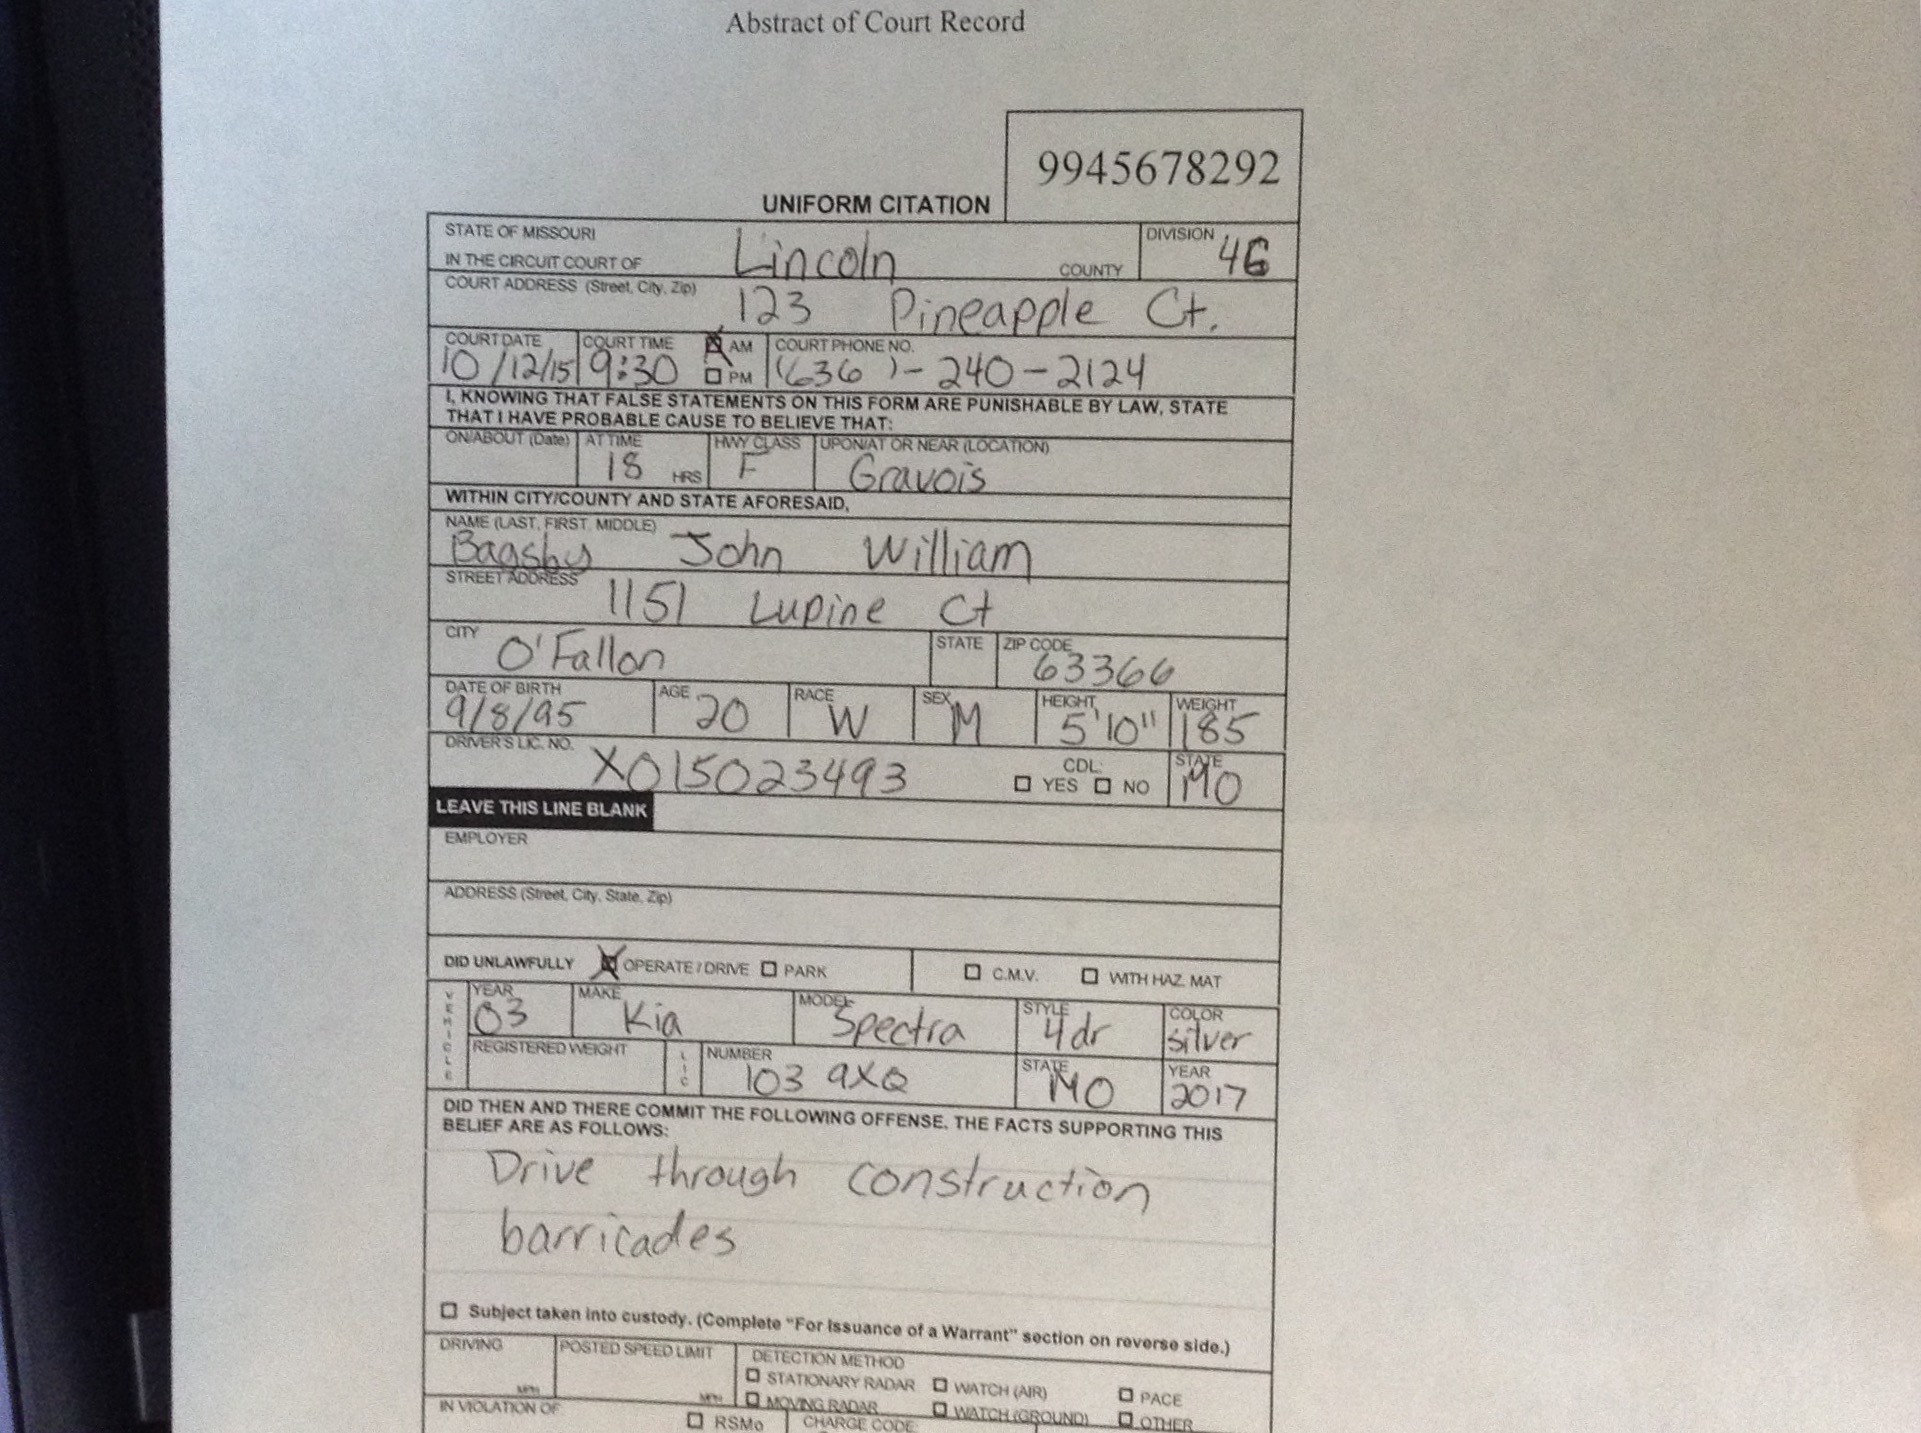 Abstract of Court Record
9945678292
UNIFORM CITATION
STATE OF MISSOURI
IN THE CIRCUIT COURT OF Lincoln COUNTY
DIVISION 46
COURT ADDRESS (Street, City, Zip) 123 Pineapple Ct.
COURT DATE COURT TIME AM COURT PHONE NO.
10/12/15 9:30 PM (636)-240-2124
I, KNOWING THAT FALSE STATEMENTS ON THIS FORM ARE PUNISHABLE BY LAW, STATE
THAT I HAVE PROBABLE CAUSE TO BELIEVE THAT:
ON/ABOUT (Date) AT TIME HWY CLASS UPON/AT OR NEAR (LOCATION)
18 HRS F Gravois
WITHIN CITY/COUNTY AND STATE AFORESAID,
NAME (LAST, FIRST, MIDDLE)
Bagsby John William
STREET ADDRESS
1151 Lupine Ct
CITY STATE ZIP CODE
O'Fallon 63366
DATE OF BIRTH AGE RACE SEX HEIGHT WEIGHT
9/8/95 20 W M 5'10" 185
DRIVER'S LIC. NO. CDL: STATE
X015023493 YES NO MO
LEAVE THIS LINE BLANK
EMPLOYER
ADDRESS (Street, City, State, Zip)
DID UNLAWFULLY OPERATE / DRIVE PARK C.M.V. WITH HAZ. MAT
VEHICLE
YEAR MAKE MODEL STYLE COLOR
03 Kia Spectra 4dr silver
REGISTERED WEIGHT LIC NUMBER STATE YEAR
103 9XQ MO 2017
DID THEN AND THERE COMMIT THE FOLLOWING OFFENSE. THE FACTS SUPPORTING THIS
BELIEF ARE AS FOLLOWS:
Drive through construction
barricades
Subject taken into custody. (Complete “For Issuance of a Warrant” section on reverse side.)
DRIVING POSTED SPEED LIMIT DETECTION METHOD
STATIONARY RADAR WATCH (AIR) PACE
MPH MPH MOVING RADAR WATCH (GROUND) OTHER
IN VIOLATION OF RSMo CHARGE CODE